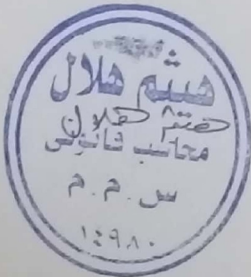 هيثم هلال
هيثم هلال
محاسب قانوني
س . م . م
١٤٩٨٠